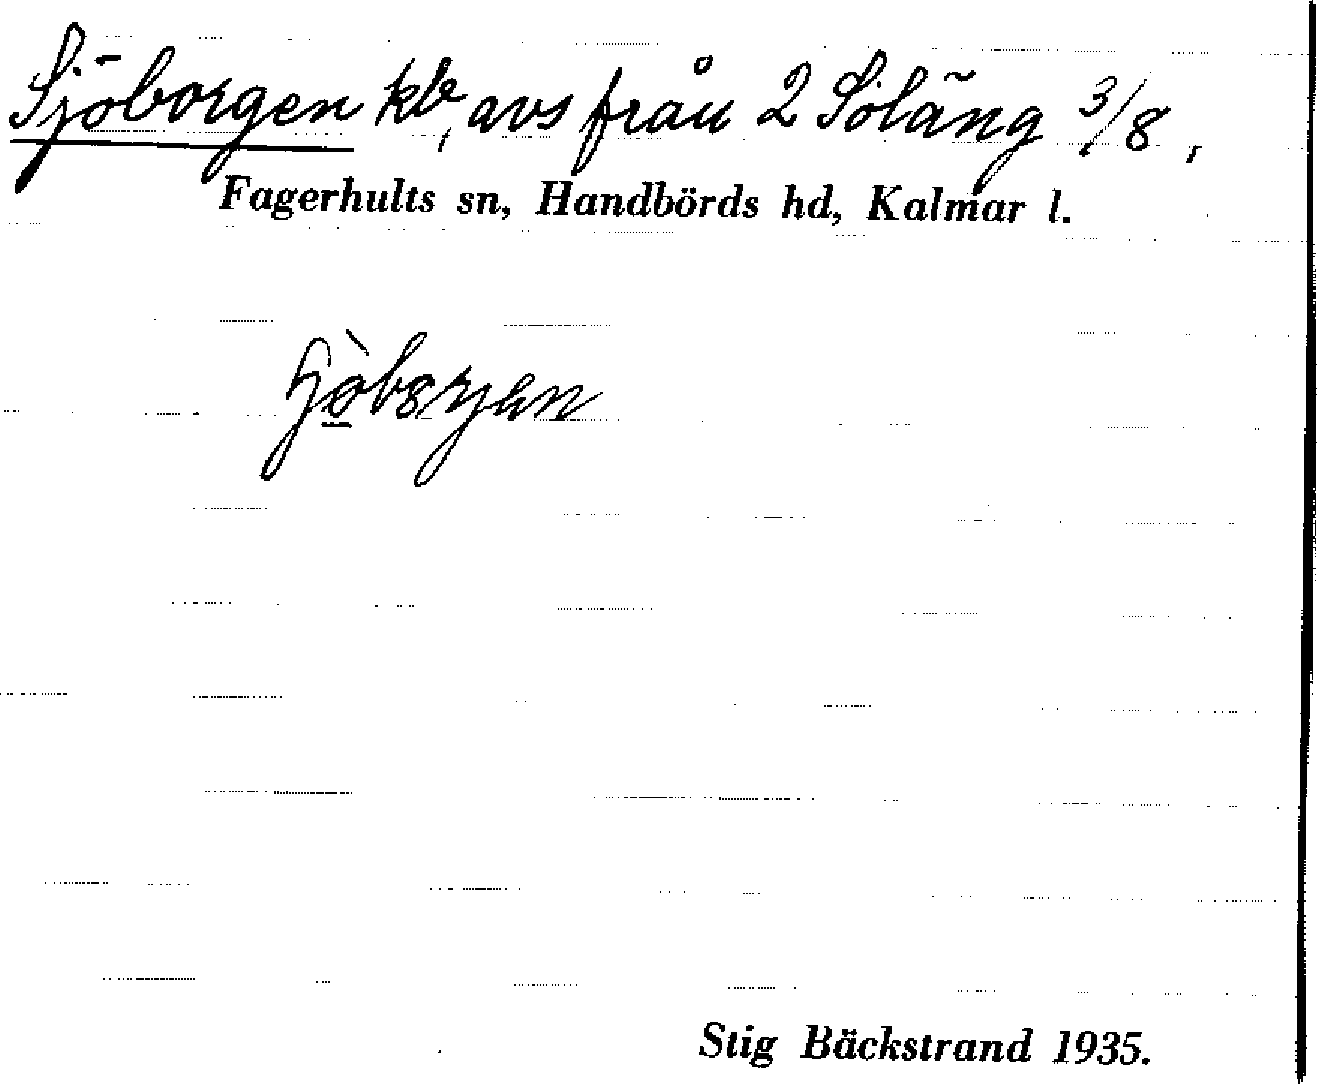 Sjöborgen kb, avs från 2 Söläng 3/8,
Fagerhults sn, Handbörds hd, Kalmar l.
Stig Bäckstrand 1935.